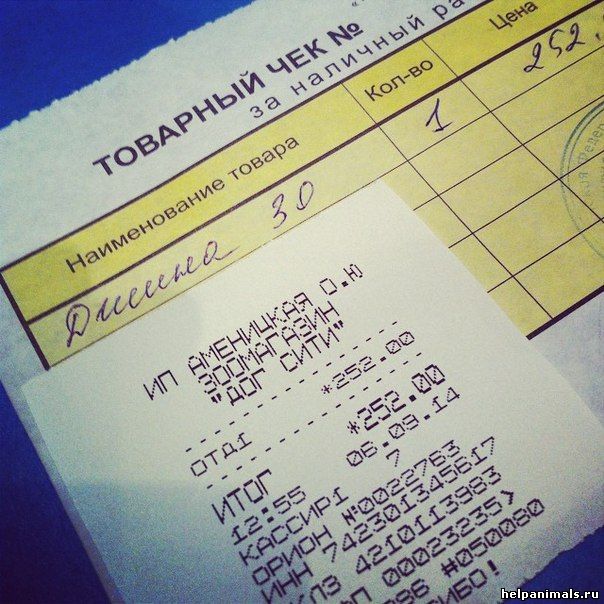 ТОВАРНЫЙ ЧЕК №
за наличный ра
Наименование товара Кол-во Цена
30 1 252.
ИП АМЕНИЦКАЯ О.Ю
ЗООМАГАЗИН
"ДОГ СИТИ"
*252.00
ОТД1
*252.00
ИТОГ
12:55 06.09.14
КАССИР1 7
ОРИОН №0022763
ИНН 742301345617
КЛЗ 4210113983
00023235>
#050080
helpanimals.ru